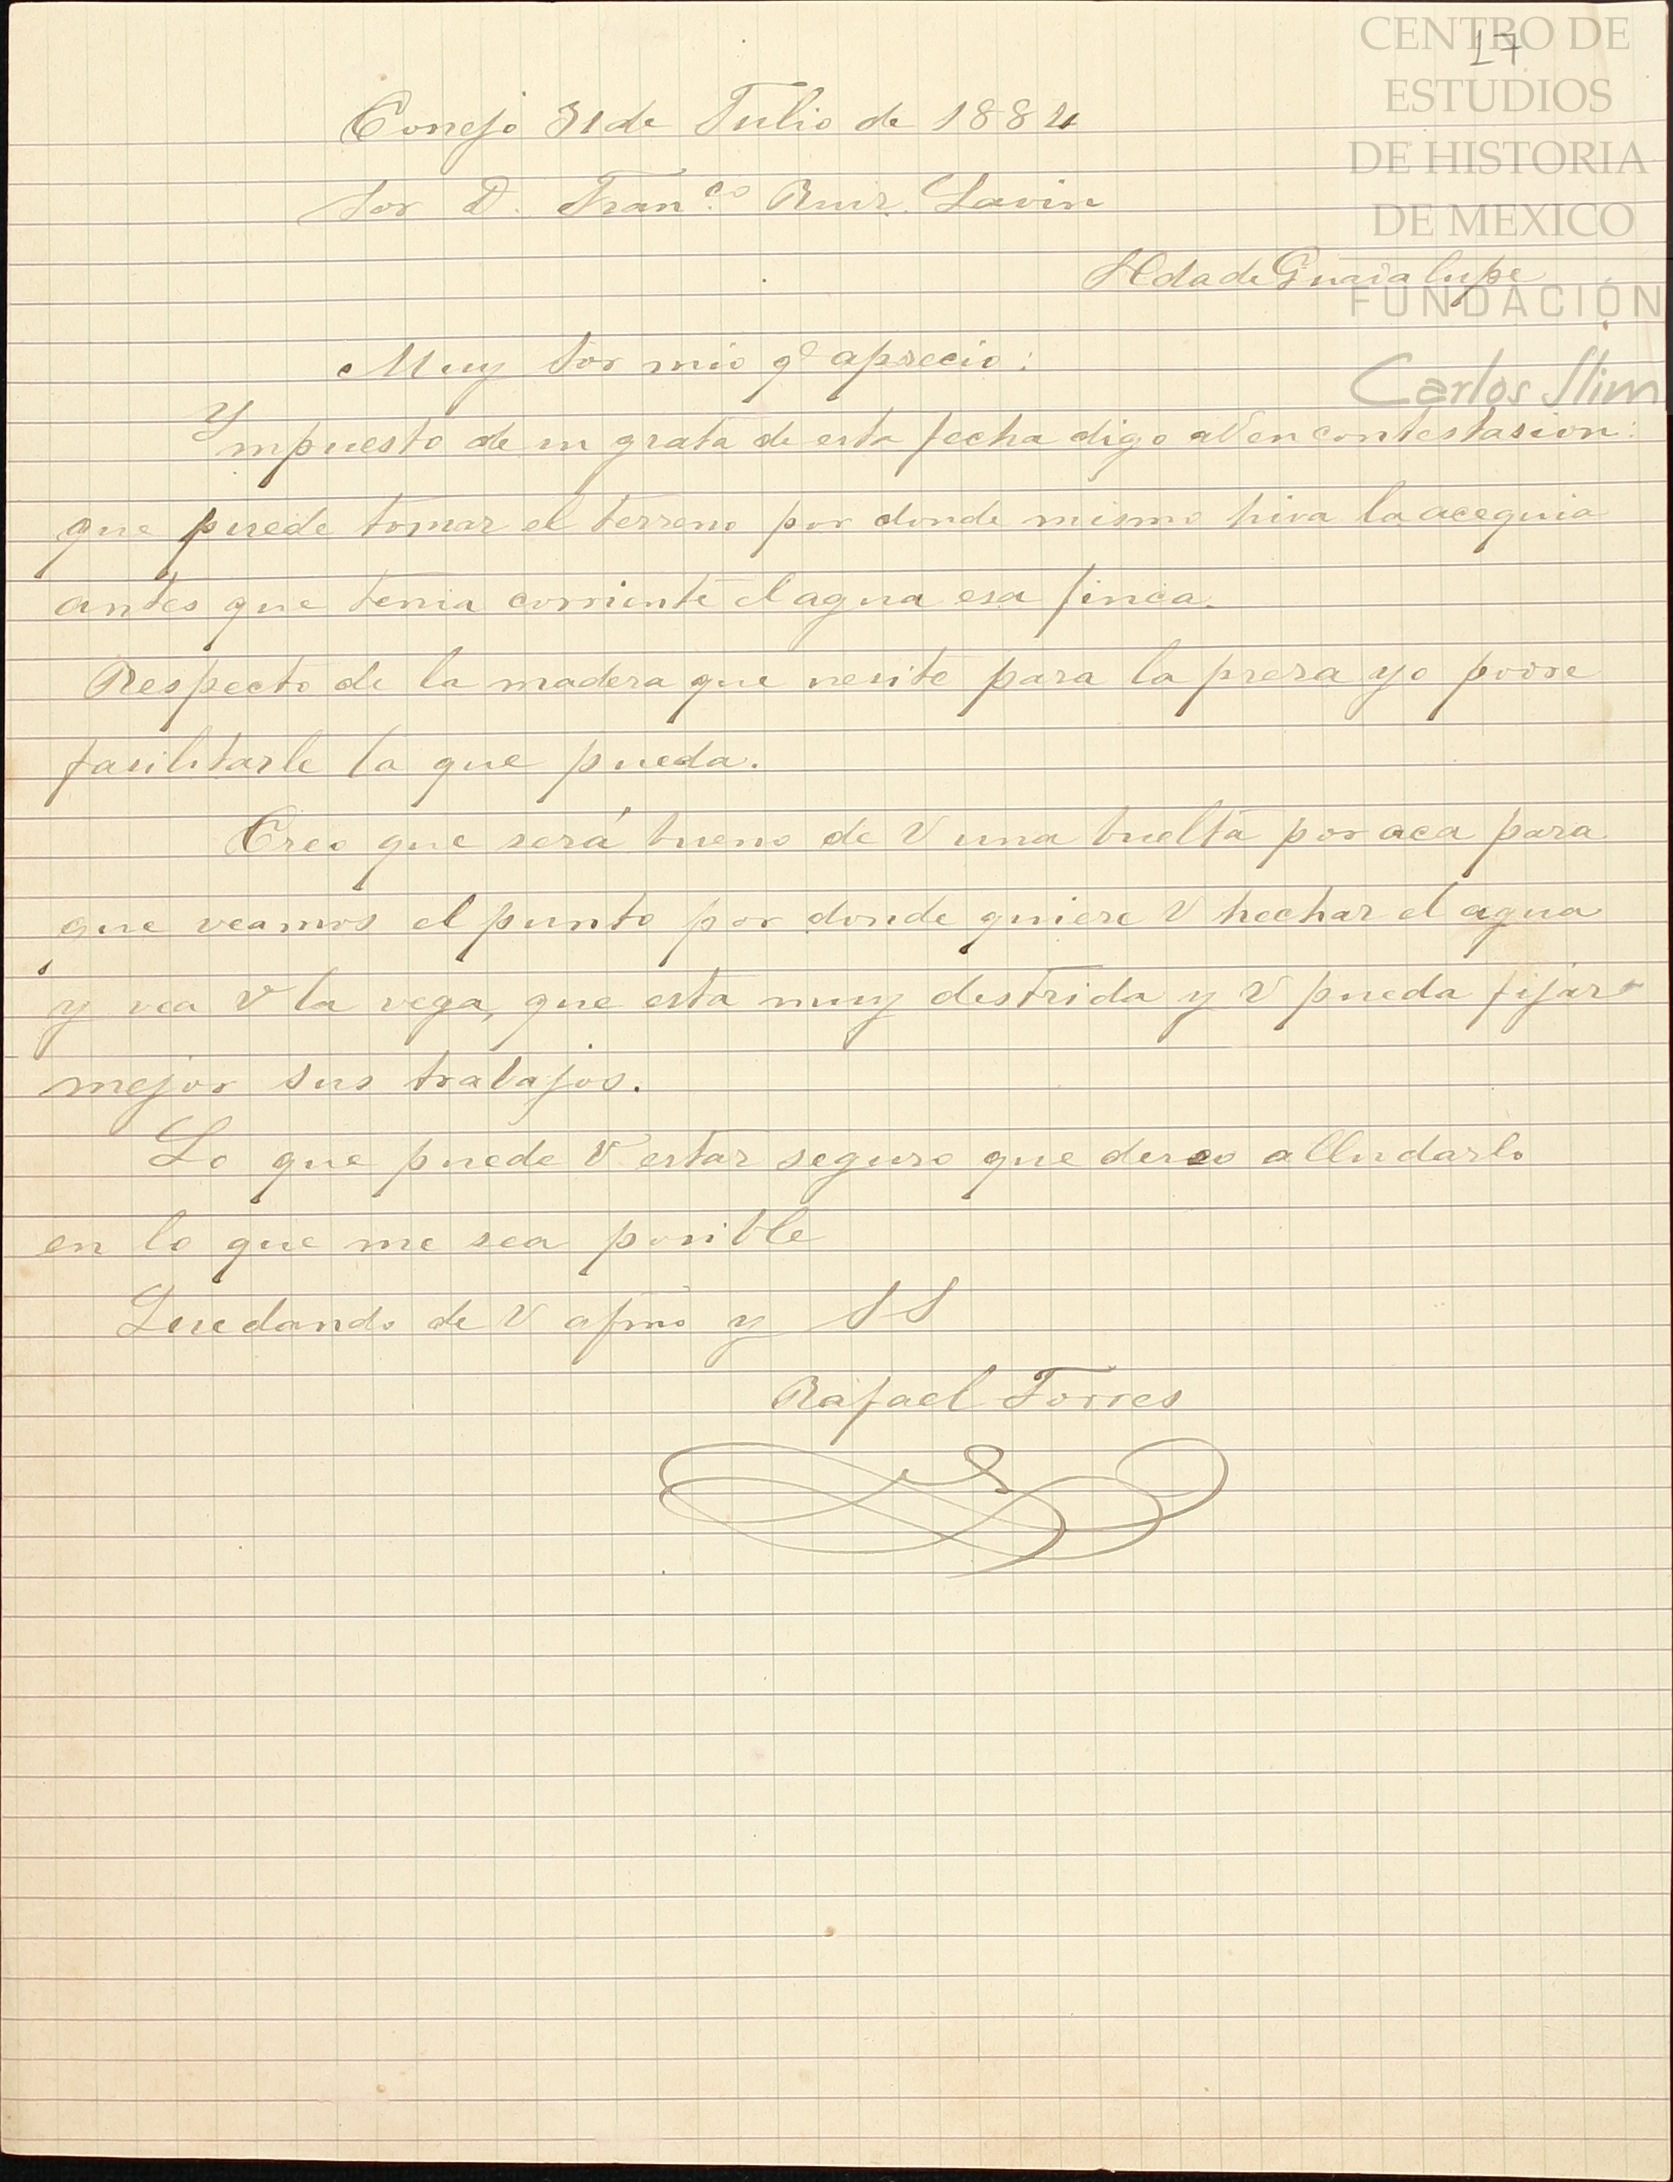 17
CENTRO DE
ESTUDIOS
DE HISTORIA
DE MEXICO
FUNDACIÓN
Carlos Slim
Conejo 31 de Julio de 1884
Sor D. Fran.co Ruiz Lavin
Hda de Guadalupe
Muy Sor mio qe aprecio:
Ympuesto de su grata de esta fecha digo a V en contestasion:
que puede tomar el terreno por donde mismo hiva la acequia
antes que tenia corriente el agua esa finca.
Respecto de la madera que nesite para la presa yo podre
fasilitarle la que pueda.
Creo que será bueno de V una buelta por aca para
que veamos el punto por donde quiere V hechar el agua
y vea V la vega, que esta muy destrida y V pueda fijar
mejor sus trabajos.
Lo que puede V estar seguro que deseo alludarlo
en lo que me sea posible
Quedando de V afmo y SS
Rafael Torres